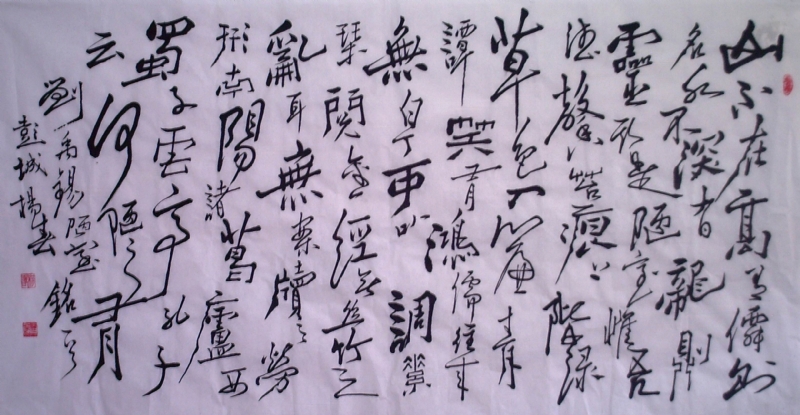 山不在高有僊則
名水不深有龍則
靈斯是陋室惟吾
德馨苔痕上階綠
草色入簾青
譚笑有鴻儒往來
無白丁可以調素
琴閱金經無絲竹之
亂耳無案牘之勞
形南陽諸葛廬西
蜀子雲亭孔子
云何陋之有
劉禹錫陋室銘
彭城楊春